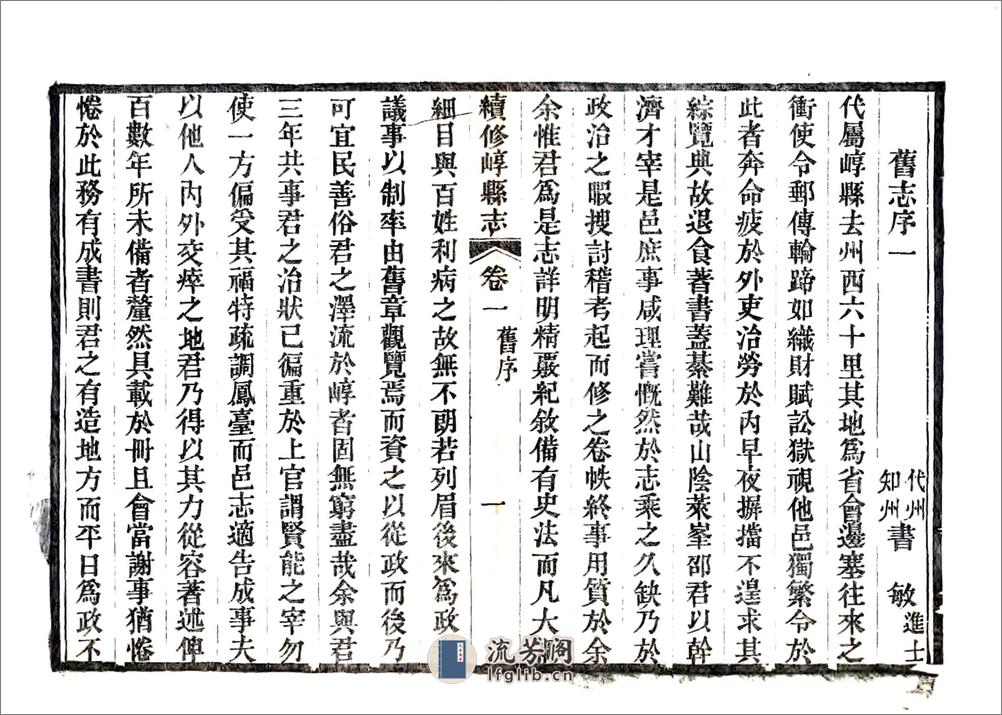 舊志序一
代州知州書 敏進士
代屬崞縣去州西六十里其地爲省會邊塞往來之
衝使令郵傳輪蹄如織財賦訟獄視他邑獨繁令於
此者奔命疲於外吏治勞於內早夜摒擋不遑求其
綜覽典故退食著書蓋綦難哉山陰萊峯邵君以幹
濟才宰是邑庶事咸理嘗慨然於志乘之久缺乃於
政治之暇搜討稽考起而修之卷帙終事用質於余
余惟君爲是志詳明精嚴紀敘備有史法而凡大綱
續修崞縣志 卷一 舊序 一
細目與百姓利病之故無不朗若列眉後來爲政
議事以制率由舊章觀覽焉而資之以從政而後乃
可宜民善俗君之澤流於崞者固無窮盡哉余與君
三年共事君之治狀已徧重於上官謂賢能之宰勿
使一方偏受其福特疏調鳳臺而邑志適告成事夫
以他人內外交瘁之地君乃得以其力從容著述俾
百數年所未備者釐然具載於冊且會當謝事猶惓
惓於此務有成書則君之有造地方而平日爲政不
流芳閣
lfglib.cn